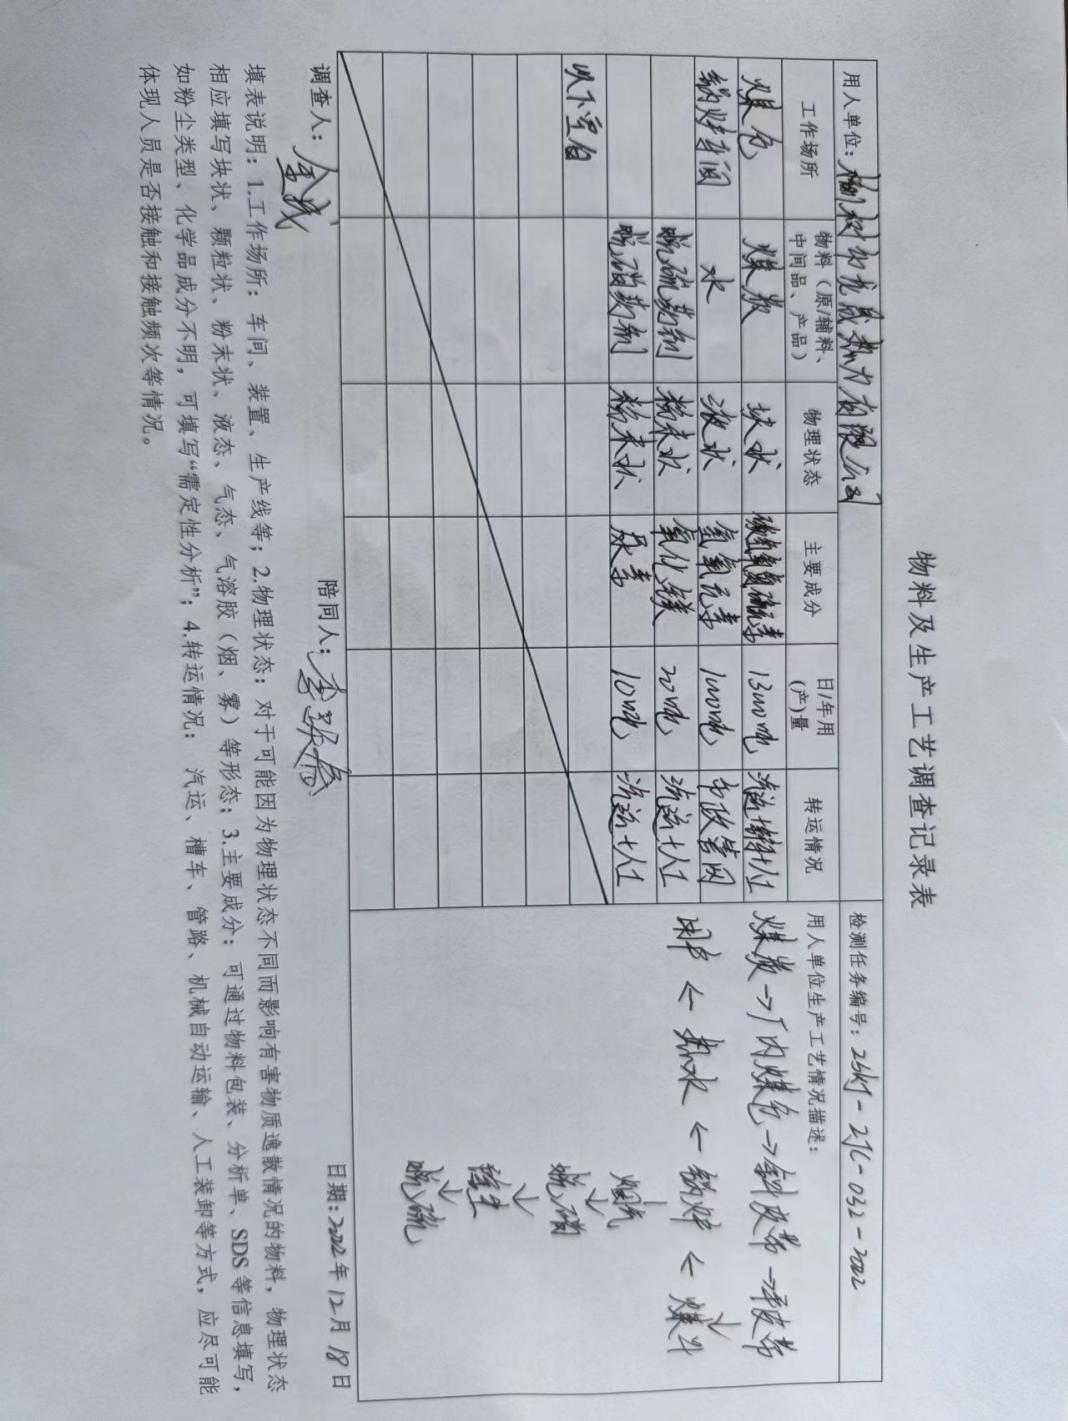 物料及生产工艺调查记录表
用人单位：优晟热力有限公司 检测任务编号：ZJC-032-2022
工作场所 物料（原/辅料、中间品、产品） 物理状态 主要成分 日/年用(产)量 转运情况 用人单位生产工艺情况描述：
煤仓 煤炭 块状 13000吨
锅炉车间 水 液状 氢氧元素 1000吨 市政管网
脱硫药剂 粉末状 氧化镁 20吨 汽运+人工
脱硝药剂 粉末状 尿素 10吨 汽运+人工
以下空白
煤炭→厂内煤仓→斜皮带→平皮带
↓
用户←热水←锅炉←煤斗
烟气
↓
脱硝
↓
除尘
↓
脱硫
调查人： 陪同人： 日期：2022年12月18日
填表说明：1.工作场所：车间、装置、生产线等；2.物理状态：对于可能因为物理状态不同而影响有害物质逸散情况的物料，物理状态
相应填写块状、颗粒状、粉末状、液态、气态、气溶胶（烟、雾）等形态；3.主要成分：可通过物料包装、分析单、SDS等信息填写，
如粉尘类型、化学品成分不明，可填写“需定性分析”；4.转运情况： 汽运、槽车、管路、机械自动运输、人工装卸等方式，应尽可能
体现人员是否接触和接触频次等情况。